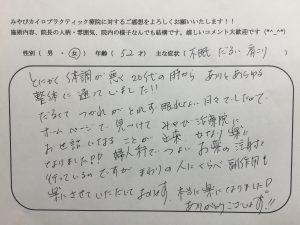 みやびカイロプラクティック療院に対するご感想をよろしくお願いいたします！！
施術内容、院長の人柄・雰囲気、院内の様子なんでも結構です。嬉しいコメント大歓迎です(*^_^*)
性別（ 男 ・ 女 ） 年齢（ 52才 ） 主な症状（ 不眠 だるい 肩こり ）
とにかく体調が悪く20代の時から ありとあらゆる
整体に通ってました!!
だるくて つかれがとれず 眠れない 日々でしたので
ホームページで見つけて みやび治療院に
お世話になることが 出来 せなり 楽に
なりました!! 婦人科で つよい お薬の注射を
行っているのですが まわりの人にくらべ 副作用も
楽にさせていただいております。本当に楽になりました!!
ありがとうございます!!